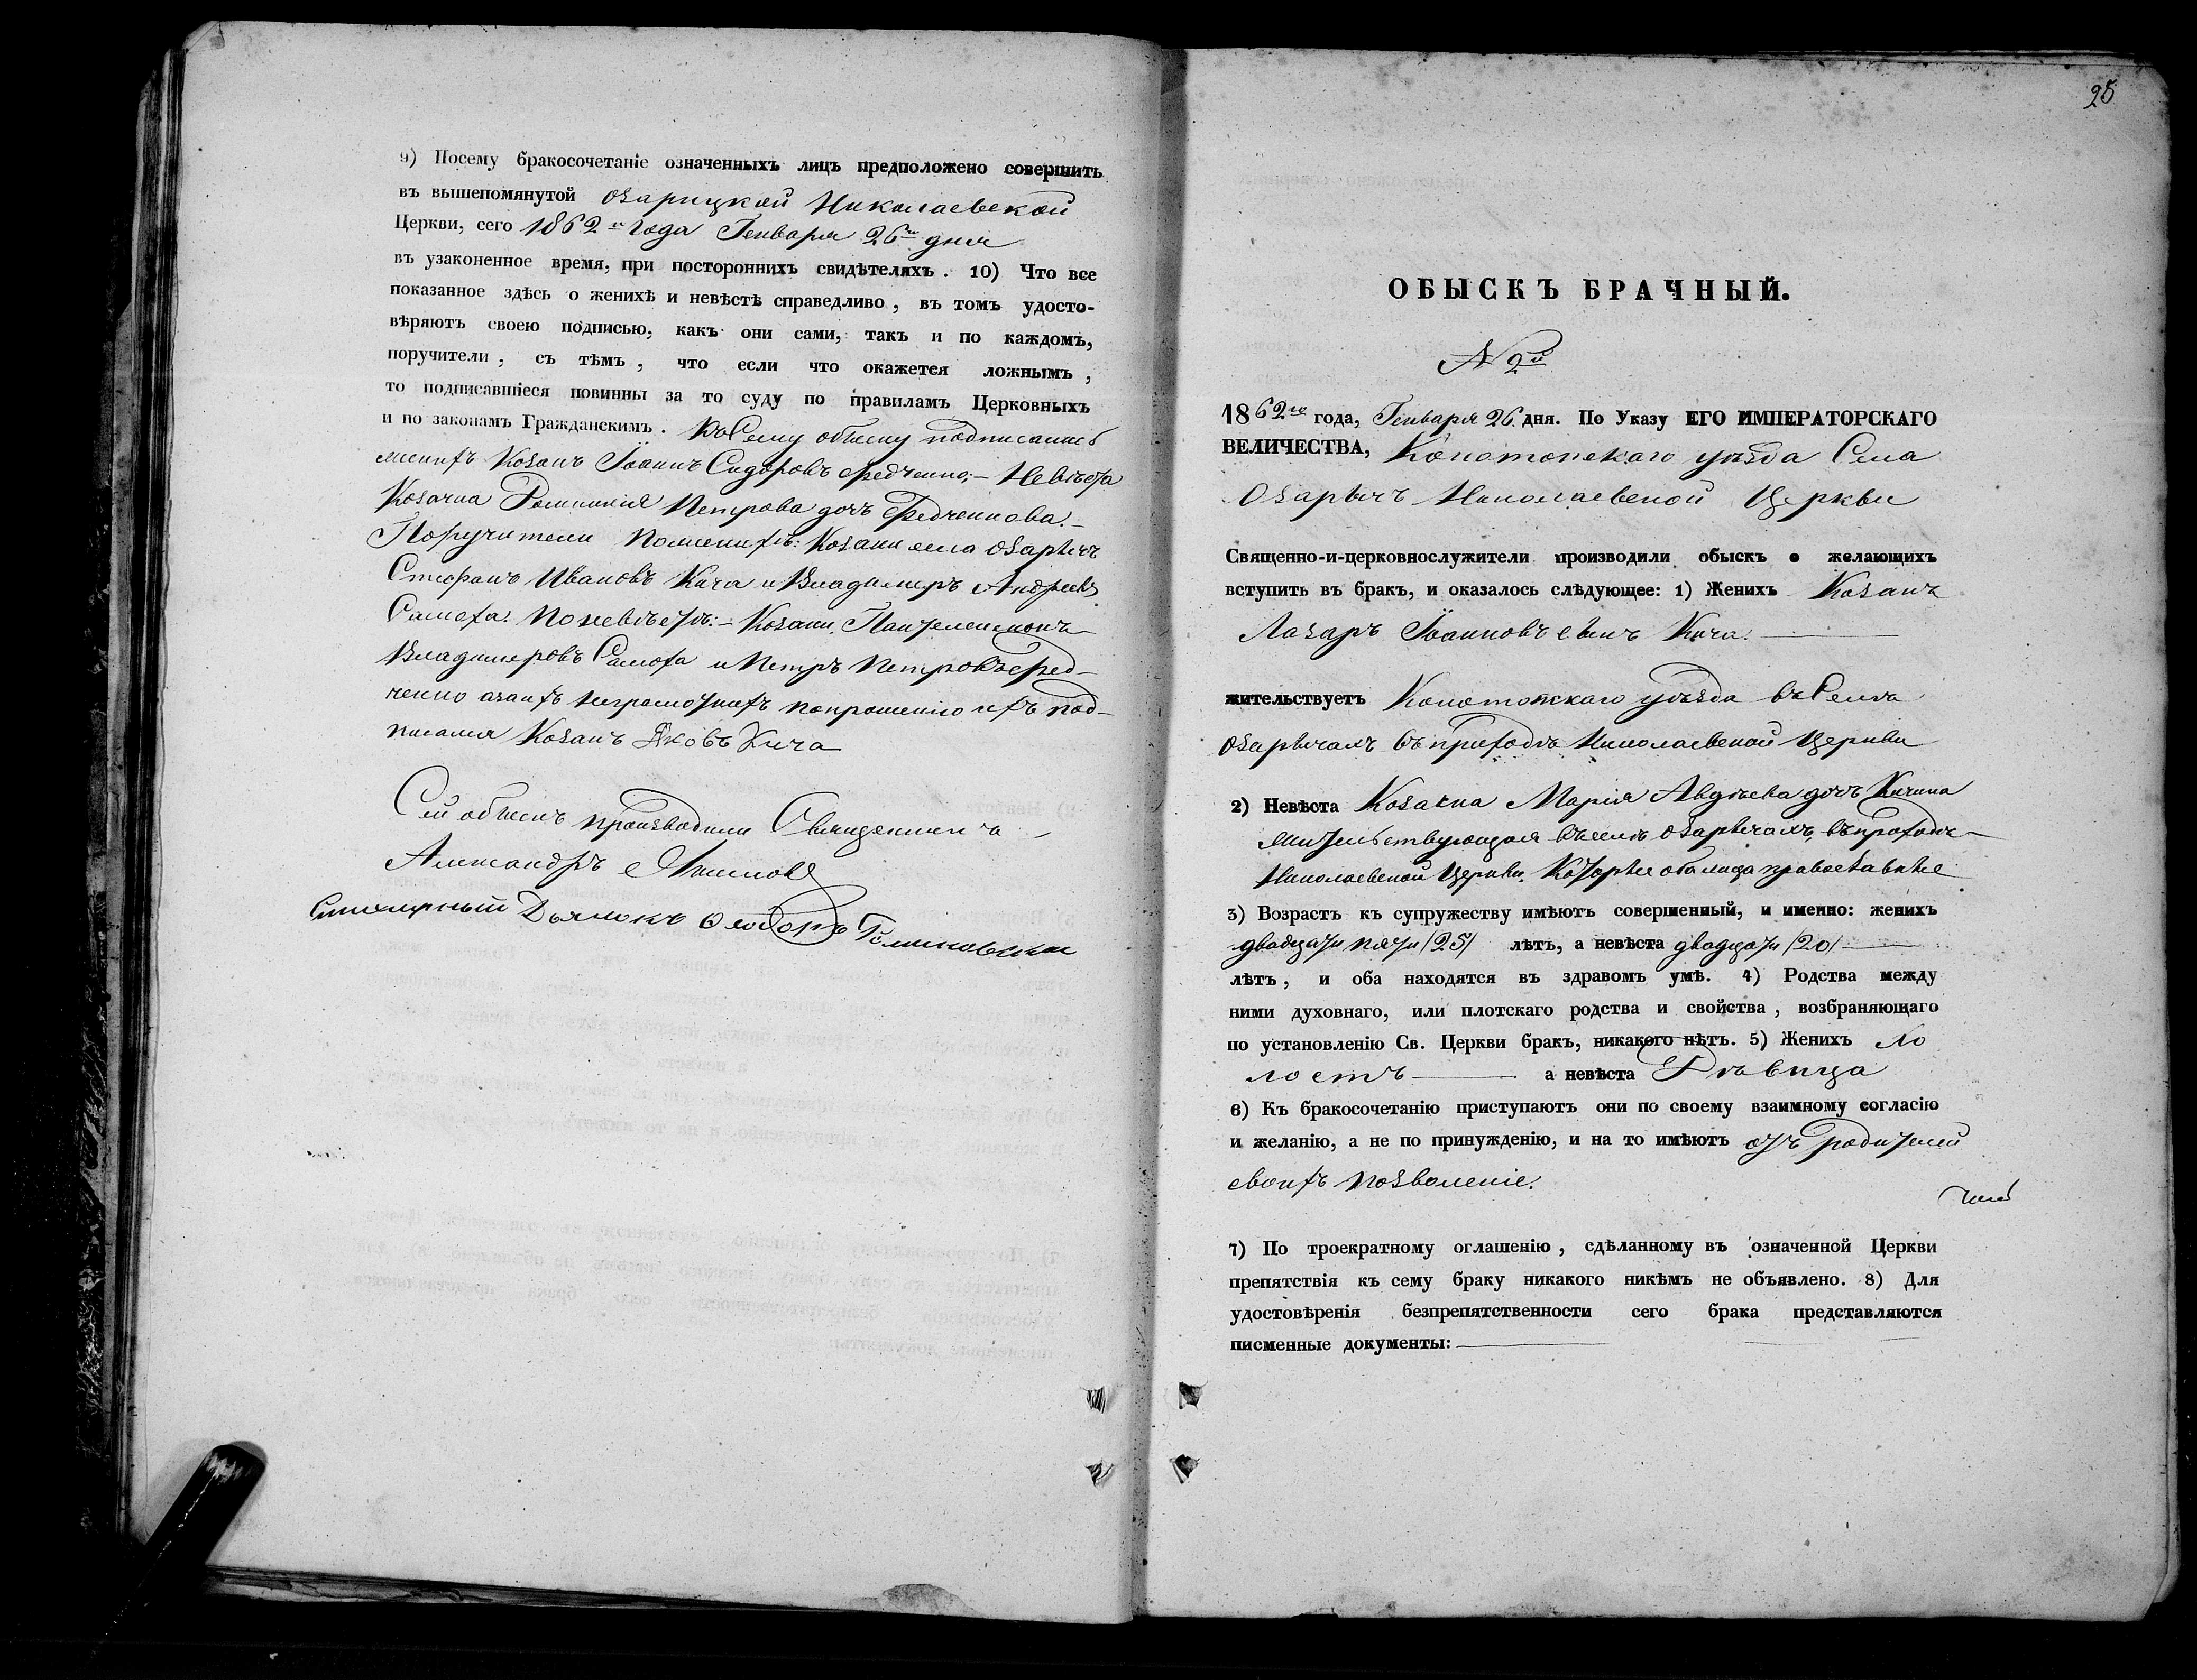 9) Посему бракосочетаніе означенныхъ лицъ предположено совершить
въ вышепомянутой Озарицкой Николаевской
Церкви, сего 1862го года Генваря 26го дня
въ узаконенное время, при постороннихъ свидѣтеляхъ. 10) Что все
показанное здѣсь о женихѣ и невѣстѣ справедливо, въ томъ удосто-
вѣряютъ своею подписью, какъ они сами, такъ и по каждомъ,
поручители, съ тѣмъ, что если что окажется ложнымъ,
то подписавшіеся повинны за то суду по правиламъ Церковныхъ
и по законамъ Гражданскимъ. Ко Сему обыску подписались
женихъ Козакъ Іоаннъ Сидоровъ Федченко; – Невѣста
Козачка Петрова дочъ Федченкова. –
Поручители по женихѣ: Козаки села Озарычъ
Стефанъ Ивановъ Кича и Владимеръ Андреевъ
Самоха. По невѣстѣ: – Козаки, Пантелеимонъ
Владимеровъ Самоха и Петръ Петровъ Фед-
ченко а за ихъ неграмотныхъ по прошенію ихъ под-
писался Козакъ Яковъ Кича
Сей обыскъ производили Священникъ
Александръ
Дьячокъ Ѳеодоръ
25
ОБЫСКЪ БРАЧНЫЙ.
N 2й
1862го года, Генваря 26. дня. По Указу ЕГО ИМПЕРАТОРСКАГО
ВЕЛИЧЕСТВА, Конотопскаго уѣзда Села
Озарычъ Николаевской Церкви
Священно-и-церковнослужители производили обыскъ о желающихъ
вступить въ бракъ, и оказалось слѣдующее: 1) Женихъ Козакъ
Лазаръ Іоанновъ сынъ Кича.
жительствуетъ Конотопскаго уѣзда въ Селѣ
Озарычахъ въ приходѣ Николаевской Церкви
2) Невѣста Козачка Марія Авдѣева дочъ Кичина
жительствующая въ селѣ Озарычахъ, въ приходѣ
Николаевской Церкви. Которые оба лица православные
3) Возрастъ къ супружеству имѣютъ совершенный, и именно: женихъ
двадцати пяти /25/ лѣтъ, а невѣста двадцати /20/
лѣтъ, и оба находятся въ здравомъ умѣ. 4) Родства между
ними духовнаго, или плотскаго родства и свойства, возбраняющаго
по установленію Св. Церкви бракъ, никакого нѣтъ. 5) Женихъ хо
лостъ а невѣста Дѣвица
6) Къ бракосочетанію приступаютъ они по своему взаимному согласію
и желанію, а не по принужденію, и на то имѣютъ отъ родителей
своихъ позволеніе.
7) По троекратному оглашенію, сдѣланному въ означенной Церкви
препятствія къ сему браку никакого никѣмъ не объявлено. 8) Для
удостовѣренія безпрепятственности сего брака представляются
писменные документы: